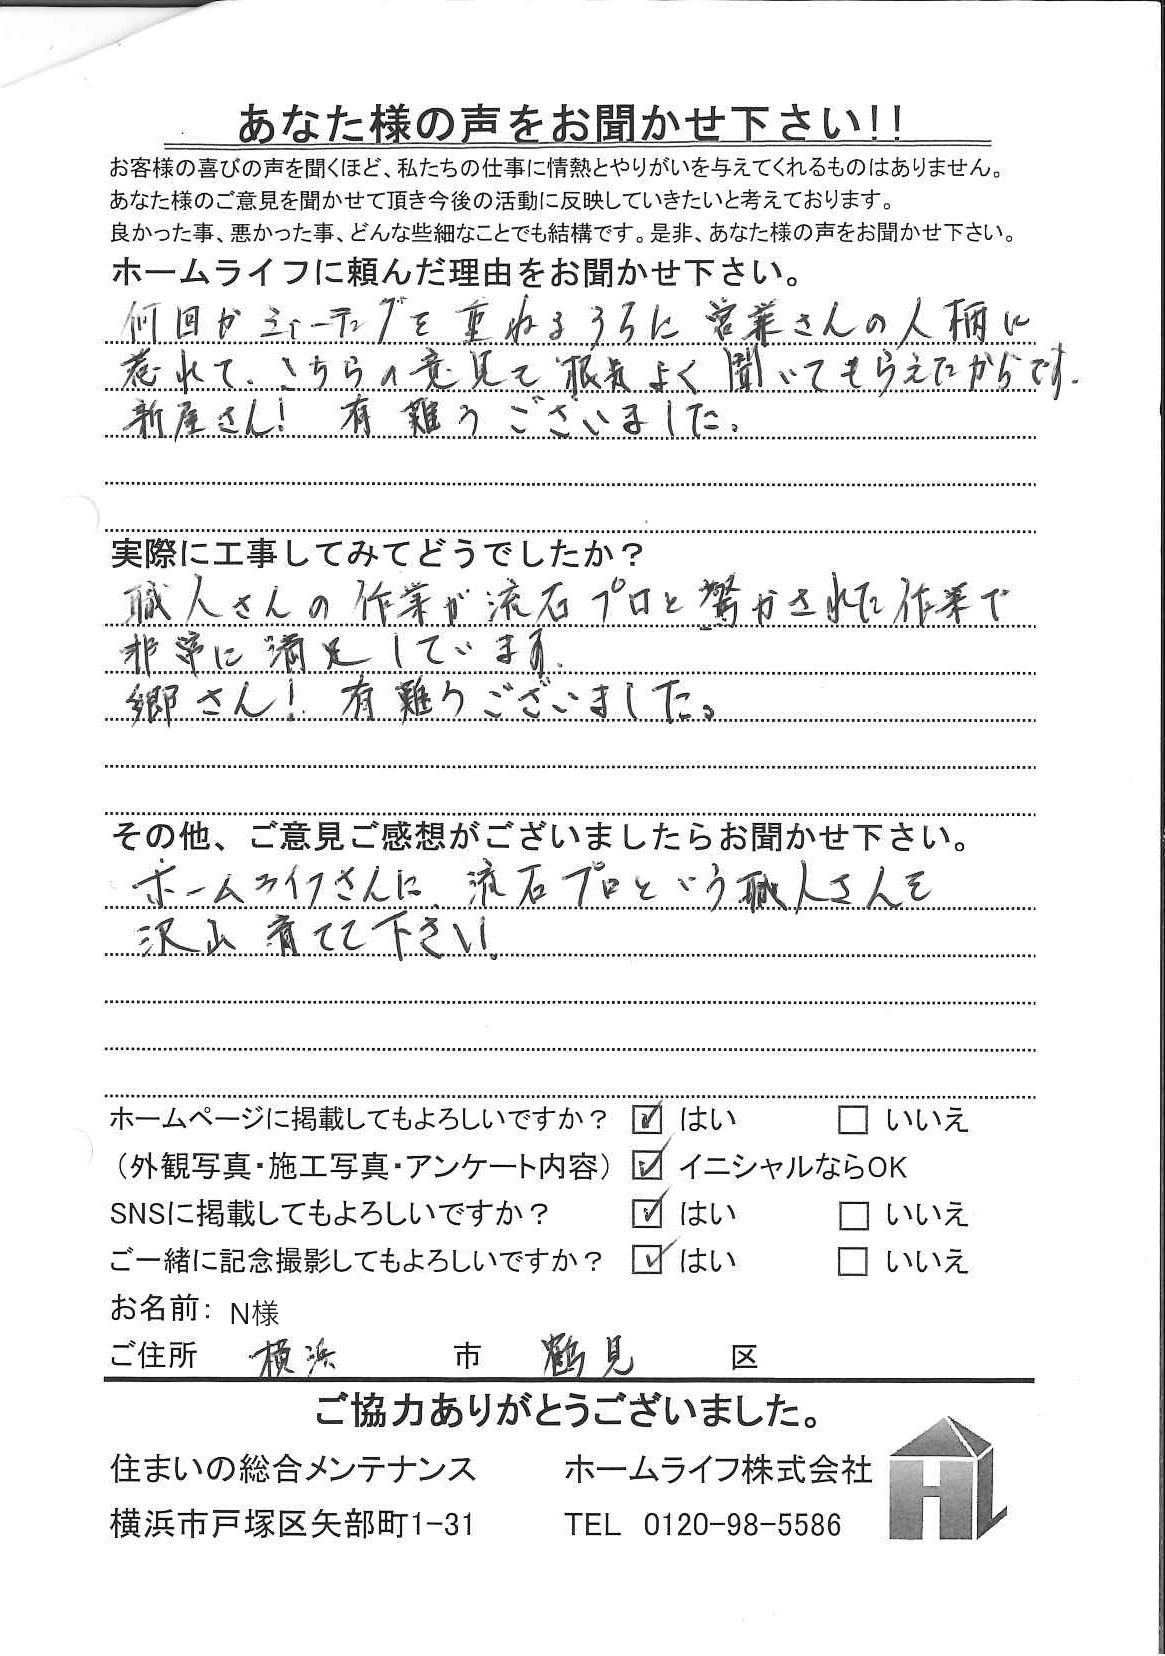 あなた様の声をお聞かせ下さい!!
お客様の喜びの声を聞くほど、私たちの仕事に情熱とやりがいを与えてくれるものはありません。
あなた様のご意見を聞かせて頂き今後の活動に反映していきたいと考えております。
良かった事、悪かった事、どんな些細なことでも結構です。是非、あなた様の声をお聞かせ下さい。
ホームライフに頼んだ理由をお聞かせ下さい。
何回かミーティングを重ねるうちに営業さんの人柄に
惹れて、こちらの意見を根気よく聞いてもらえたからです。
新屋さん! 有難うございました。
実際に工事してみてどうでしたか?
職人さんの作業が流石プロと驚かされた作業で
非常に満足しています。
郷さん! 有難うございました。
その他、ご意見ご感想がございましたらお聞かせ下さい。
ホームライフさんに、流石プロという職人さんを
沢山育てて下さい。
ホームページに掲載してもよろしいですか? ☑ はい □ いいえ
(外観写真・施工写真・アンケート内容) ☑ イニシャルならOK
SNSに掲載してもよろしいですか? ☑ はい □ いいえ
ご一緒に記念撮影してもよろしいですか? ☑ はい □ いいえ
お名前: N様
ご住所 横浜 市 鶴見 区
ご協力ありがとうございました。
住まいの総合メンテナンス ホームライフ株式会社
横浜市戸塚区矢部町1-31 TEL 0120-98-5586
HL